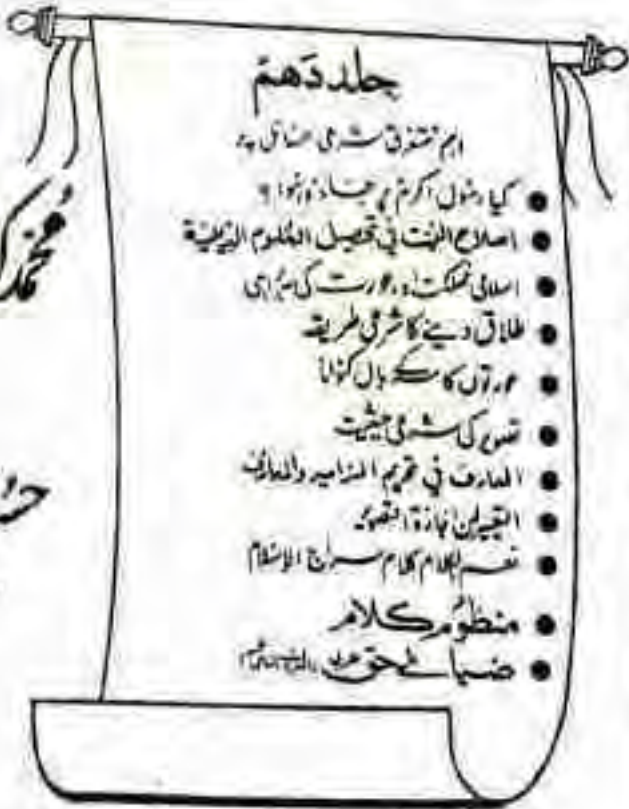 جلد دهم
اہم متفرق شرعی مسائل پر
● کیا رسول اکرمؐ پر جادو ہوا؟
● اصلاح النیت فی تحصیل العلوم الدینیة
● اسلامی مملکت اور عورت کی سربراہی
● طلاق دینے کا شرعی طریقہ
● عورتوں کا سر کے بال کٹوانا
● تصویر کی شرعی حیثیت
● المعارف فی تحریم المزامیر والمعازف
● التعبیر لمن اجازة التصویر
● نعم الکلام کلام سراج الاسلام
● منظوم کلام
● ضیائے حق
محمد